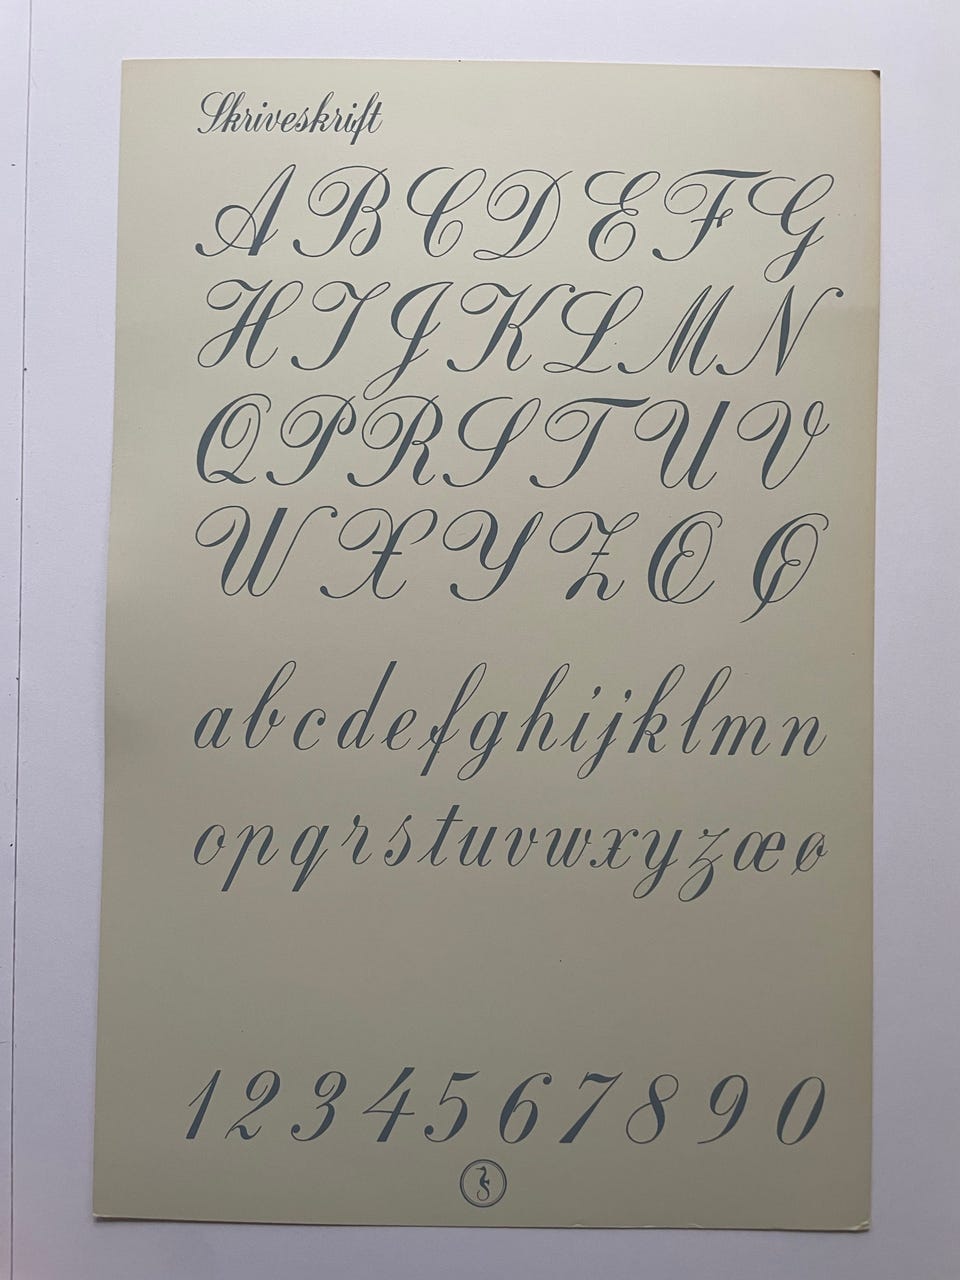 Skriveskrift
A B C D E F G
H I J K L M N
Q P R S T U V
W X Y Z Æ Ø
a b c d e f g h i j k l m n
o p q r s t u v w x y z æ ø
1 2 3 4 5 6 7 8 9 0